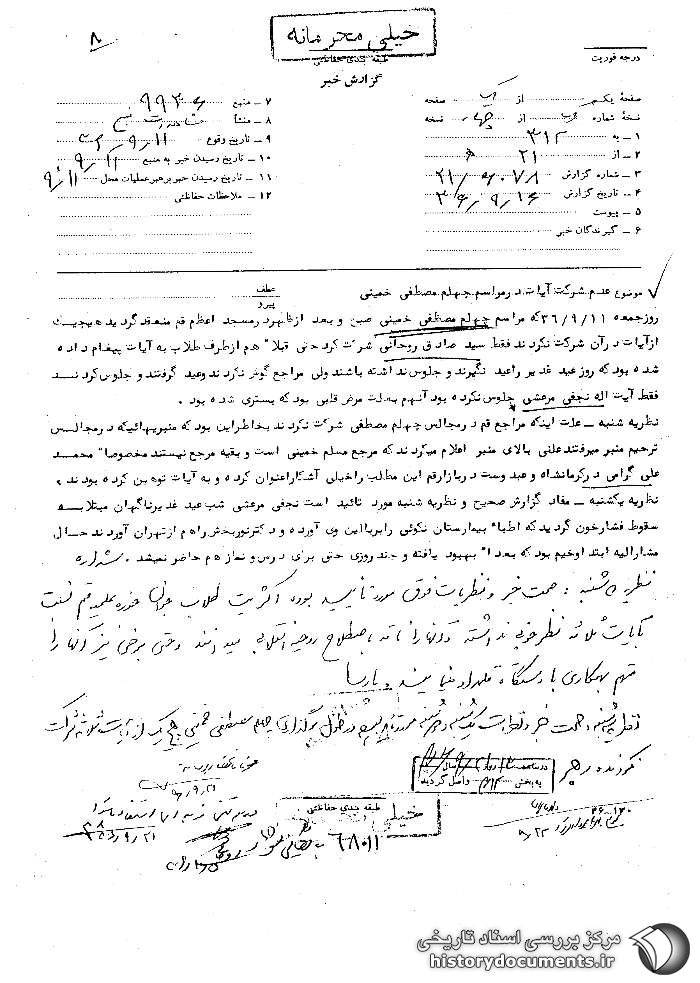 ۸
خیلی محرمانه
طبقه بندی حفاظتی
گزارش خبر
درجه فوریت
صفحهٔ یکم از یک صفحه
نسخهٔ شماره از چهار نسخه
۱ - به ۳۱۲
۲ - از ۲۱ ه
۳ - شماره گزارش
۴ - تاریخ گزارش
۵ - پیوست
۶ - گیرندگان خبر
۷ - منبع ۹۹۳۶
۸ - منشأ
۹ - تاریخ وقوع ۹/۱۱
۱۰ - تاریخ رسیدن خبر به منبع ۹/۱۱
۱۱ - تاریخ رسیدن خبر برهبر عملیات محل ۹/۱۱
۱۲ - ملاحظات حفاظتی
موضوع عدم شرکت آیات درمراسم چهلم مصطفی خمینی
عطف
پیرو
روزجمعه ۳۶/۹/۱۱ که مراسم چهلم مصطفی خمینی صبح و بعد ازظهردرمسجد اعظم قم منعقد گردید هیچیک
ازآیات درآن شرکت نکردند فقط سید صادق روحانی شرکت کرد حتی قبلا" هم ازطرف طلاب به آیات پیغام داده
شده بود که روز عید غدیر راعید نگیرند و جلوس نداشته باشند ولی مراجع گوش نکردند وعید گرفتند و جلوس کردند
فقط آیت اله نجفی مرعشی جلوس نکرده بود آنهم بعلت مرض قلبی بود که بستری شده بود .
نظریه شنبه - علت اینکه مراجع قم درمجالس چهلم مصطفی شرکت نکردند بخاطراین بود که منبریهائیکه درمجالس
ترحیم منبر میرفتند علنی بالای منبر اعلام میکردند که مرجع مسلم خمینی است و بقیه مرجع نیستند مخصوصا" محمد
علی گرامی درکرمانشاه و عبد وست دربازارقم این مطلب راخیلی آشکاراعنوان کرده و به آیات توهین کرده بودند .
نظریه یکشنبه - مفاد گزارش صحیح و نظریه شنبه مورد تائید است نجفی مرعشی شب عید غدیرناگهان مبتلابه
سقوط فشارخون گردید که اطباء بیمارستان نکوئی رابربالین وی آورده و دکترنوربخش راهم ازتهران آوردند حال
مشارالیه ابتدا وخیم بود که بعدا" بهبود یافته و چند روزی حتی برای درس و نماز هم حاضر نمیشد .
نظریه سه شنبه : صحت خبر و نظریات فوق مورد تأیید بوده اکثریت طلاب جوان حوزه علمیه قم نسبت
بآیات ثلاثه نظر خوبی نداشته و آنها را فاقد باصطلاح روحیه انقلابی میدانند و حتی برخی نیز آنها را
متهم بهمکاری با دستگاه قلمداد مینمایند . پارسا
نظریه چهارشنبه : صحت خبر و نظریات یکشنبه و سه شنبه مورد تأیید است در طول برگذاری چهلم مصطفی خمینی هیچ یک از آیات ثلاثه شرکت
نکردند
به بخش ۳۱۲ واصل گردید
طبقه بندی حفاظتی
خیلی
۹/۲۱
۹/۲۳
مرکز بررسی اسناد تاریخی
historydocuments.ir